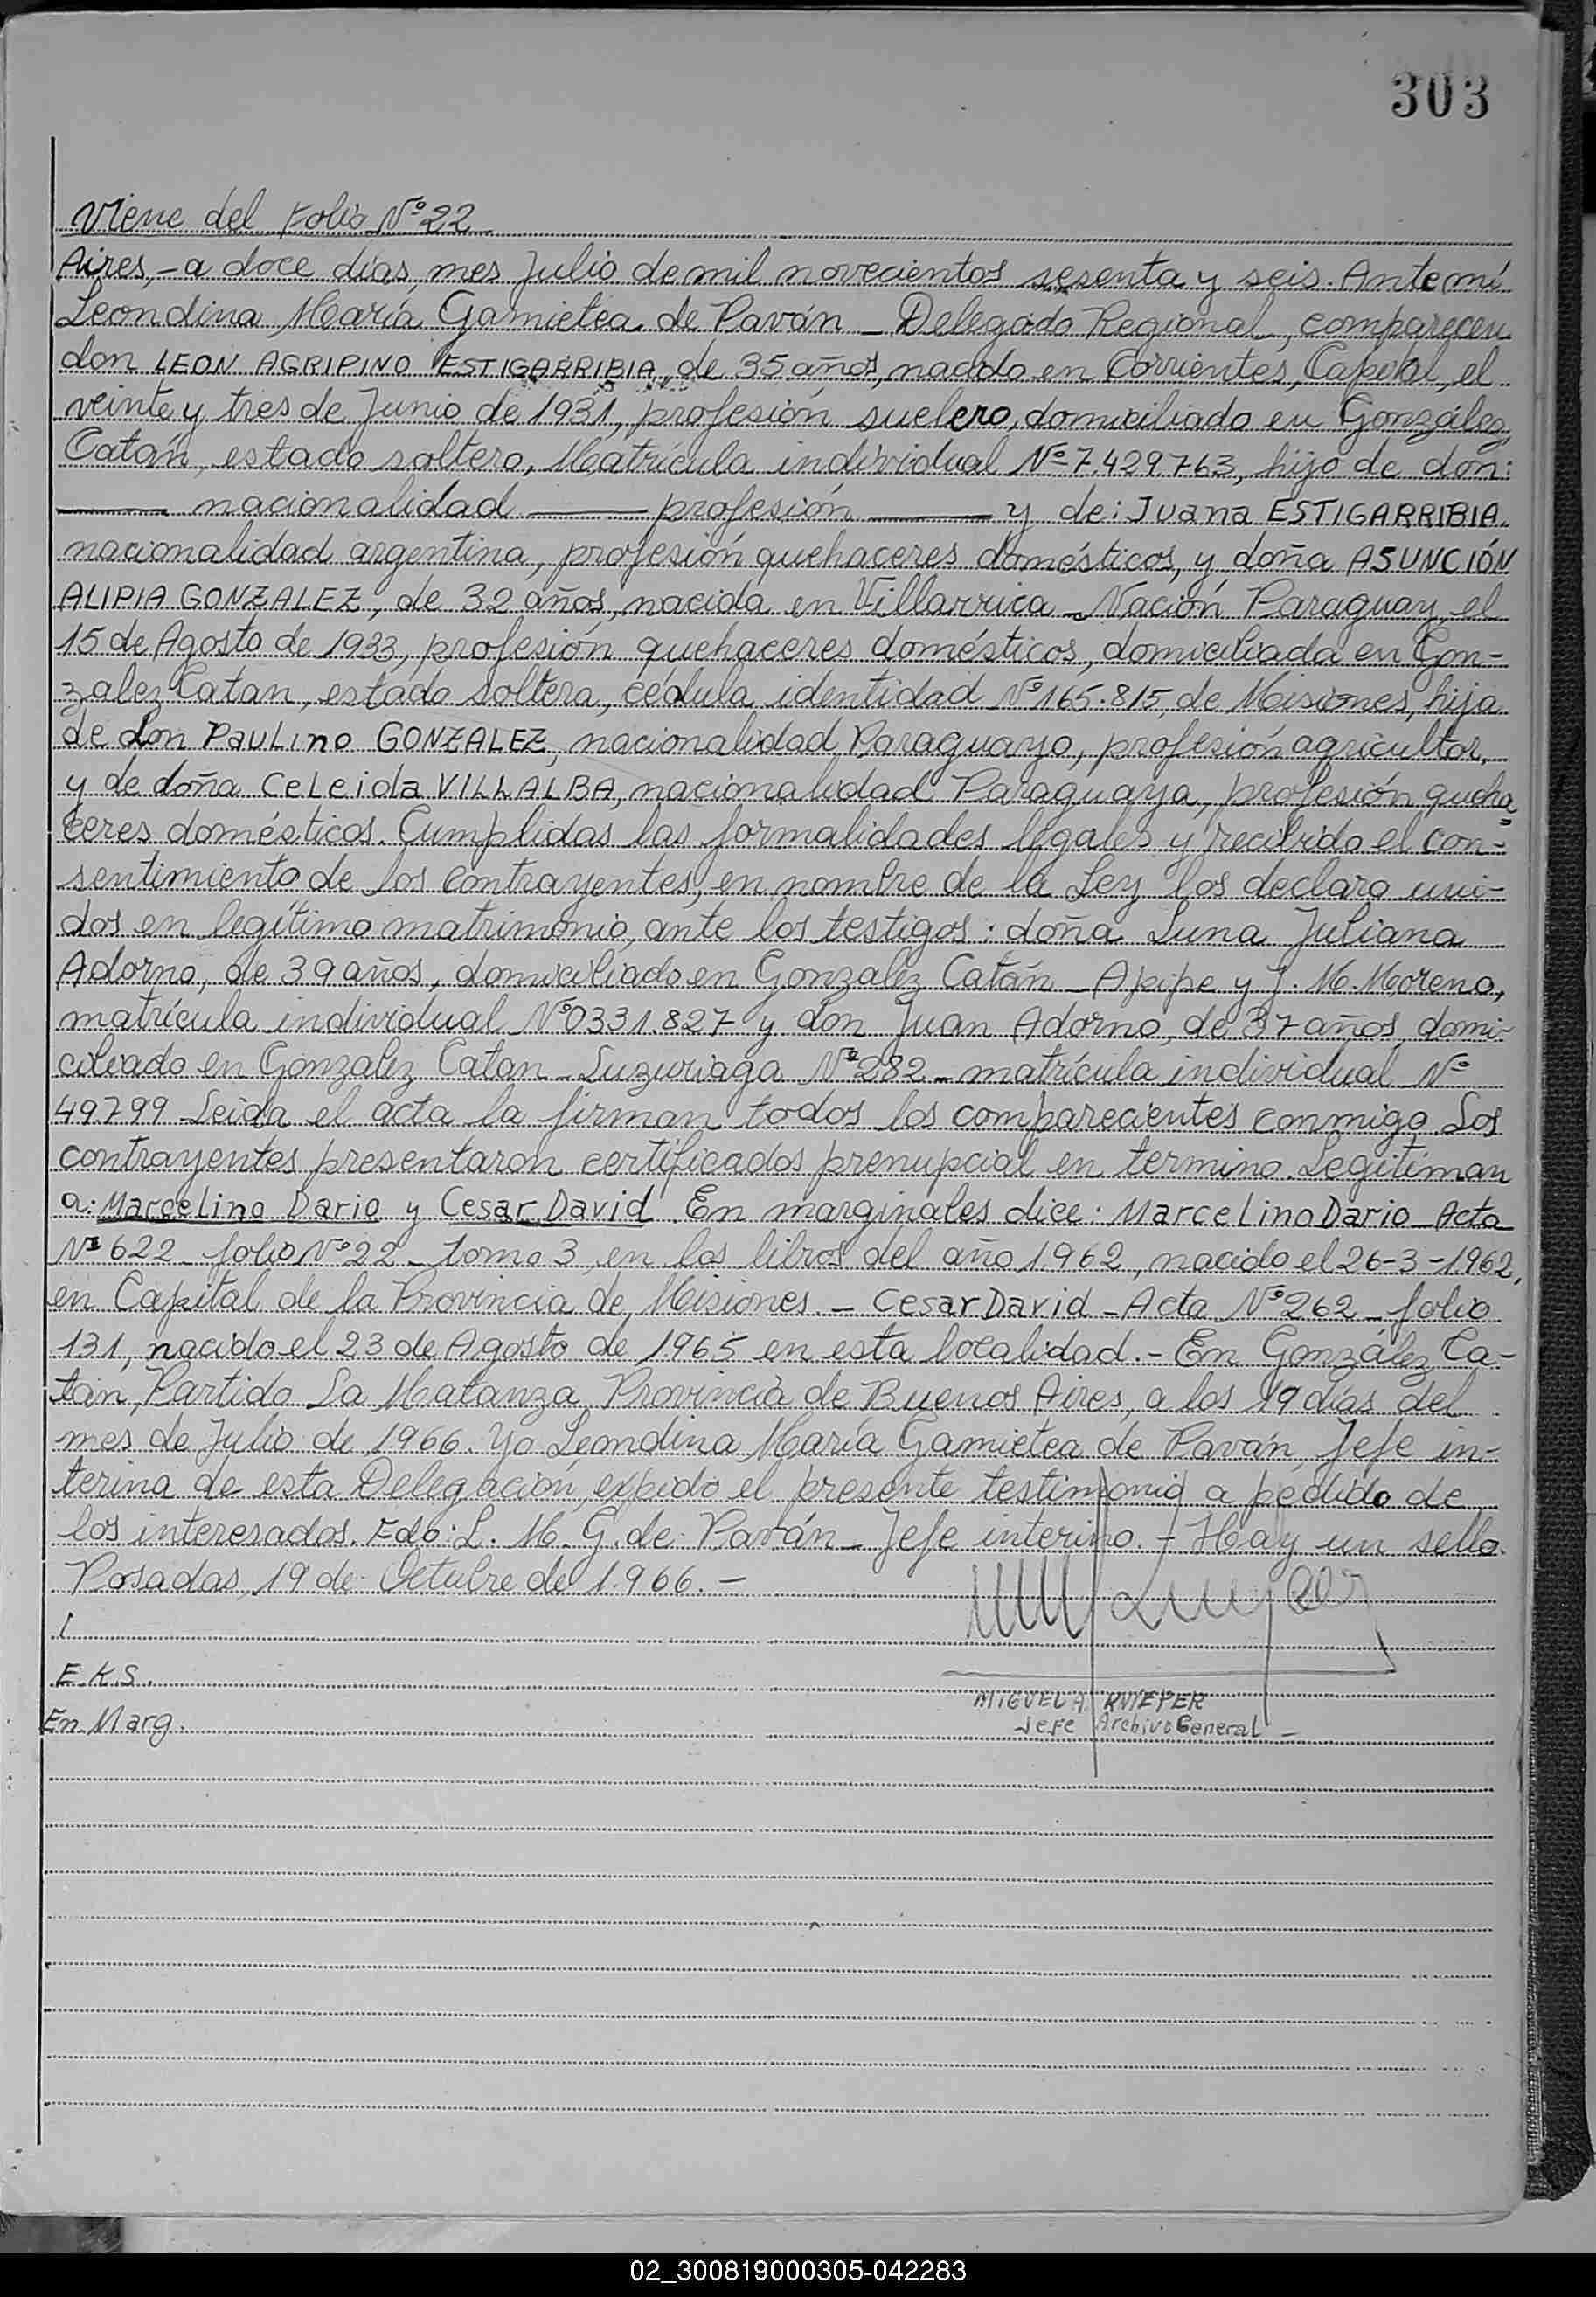 303
Viene del Folio Nº 22
Aires, - a doce días, mes Julio de mil novecientos sesenta y seis. Ante mí
Leondina María Gamietea de Paván - Delegado Regional, comparecen
don LEON AGRIPINO ESTIGARRIBIA, de 35 años, nacido en Corrientes, Capital, el
veinte y tres de Junio de 1931, profesión suelero, domiciliado en González
Catán, estado soltero, Matrícula individual Nº 7.429.763, hijo de don:
——— nacionalidad ——— profesión ——— y de: Juana ESTIGARRIBIA.
nacionalidad argentina, profesión quehaceres domésticos, y doña ASUNCIÓN
ALIPIA GONZALEZ, de 32 años, nacida en Villarrica - Nación Paraguay, el
15 de Agosto de 1933, profesión quehaceres domésticos, domiciliada en Gon-
zalez Catan, estado soltera, cédula identidad Nº 165.815, de Misiones, hija
de don PauLino GONZALEZ, nacionalidad Paraguayo, profesión agricultor,
y de doña CeLeida VILLALBA, nacionalidad Paraguaya, profesión queha=
ceres domésticos. Cumplidas las formalidades légales y recibido el con-
sentimiento de los contrayentes, en nombre de la Ley los declaro uni-
dos en legítimo matrimonio, ante los testigos: doña Luna Juliana
Adorno, de 39 años, domiciliado en Gonzalez Catán - Apipe y J. M. Moreno,
matrícula individual Nº 0331.827 y don Juan Adorno, de 37 años, domi-
ciliado en Gonzalez Catan - Luzuriaga Nº 282 - matrícula individual Nº
49.799. Leida el acta la firman todos los comparecientes conmigo. Los
contrayentes presentaron certificados prenupcial en termino. Legitiman
a: Marcelino Dario y Cesar David. En marginales dice: MarceLino Dario - Acta
Nº 622 - folio Nº 22 - tomo 3, en los libros del año 1.962, nacido el 26-3-1962,
en Capital de la Provincia de Misiones. - Cesar David - Acta Nº 262 - folio
131, nacido el 23 de Agosto de 1965 en esta localidad. - En González Ca-
tán, Partido La Matanza, Provincia de Buenos Aires, a los 19 días del
mes de Julio de 1966. Yo Leondina María Gamietea de Paván, Jefe in-
terina de esta Delegación, expido el presente testimonio a pedido de
los interesados. Fdo: L. M. G. de Paván - Jefe interino. - Hay un sello.
Posadas, 19 de Octubre de 1.966. -
E.K.S.
MIGUEL A. KNIEPER
En Marg.
Jefe Archivo General -
02_300819000305-042283